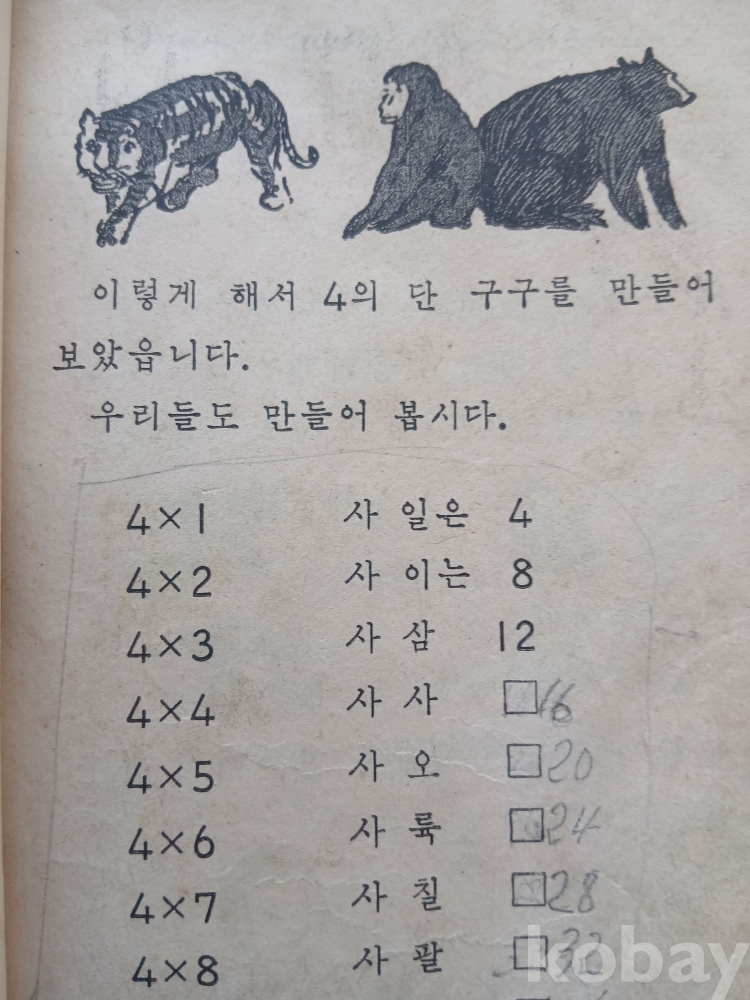 이렇게 해서 4의 단 구구를 만들어
보았읍니다.
우리들도 만들어 봅시다.
4×1 사 일은 4
4×2 사 이는 8
4×3 사 삼 12
4×4 사 사 □ 16
4×5 사 오 □ 20
4×6 사 륙 □ 24
4×7 사 칠 □ 28
4×8 사 팔 □ 32
kobay